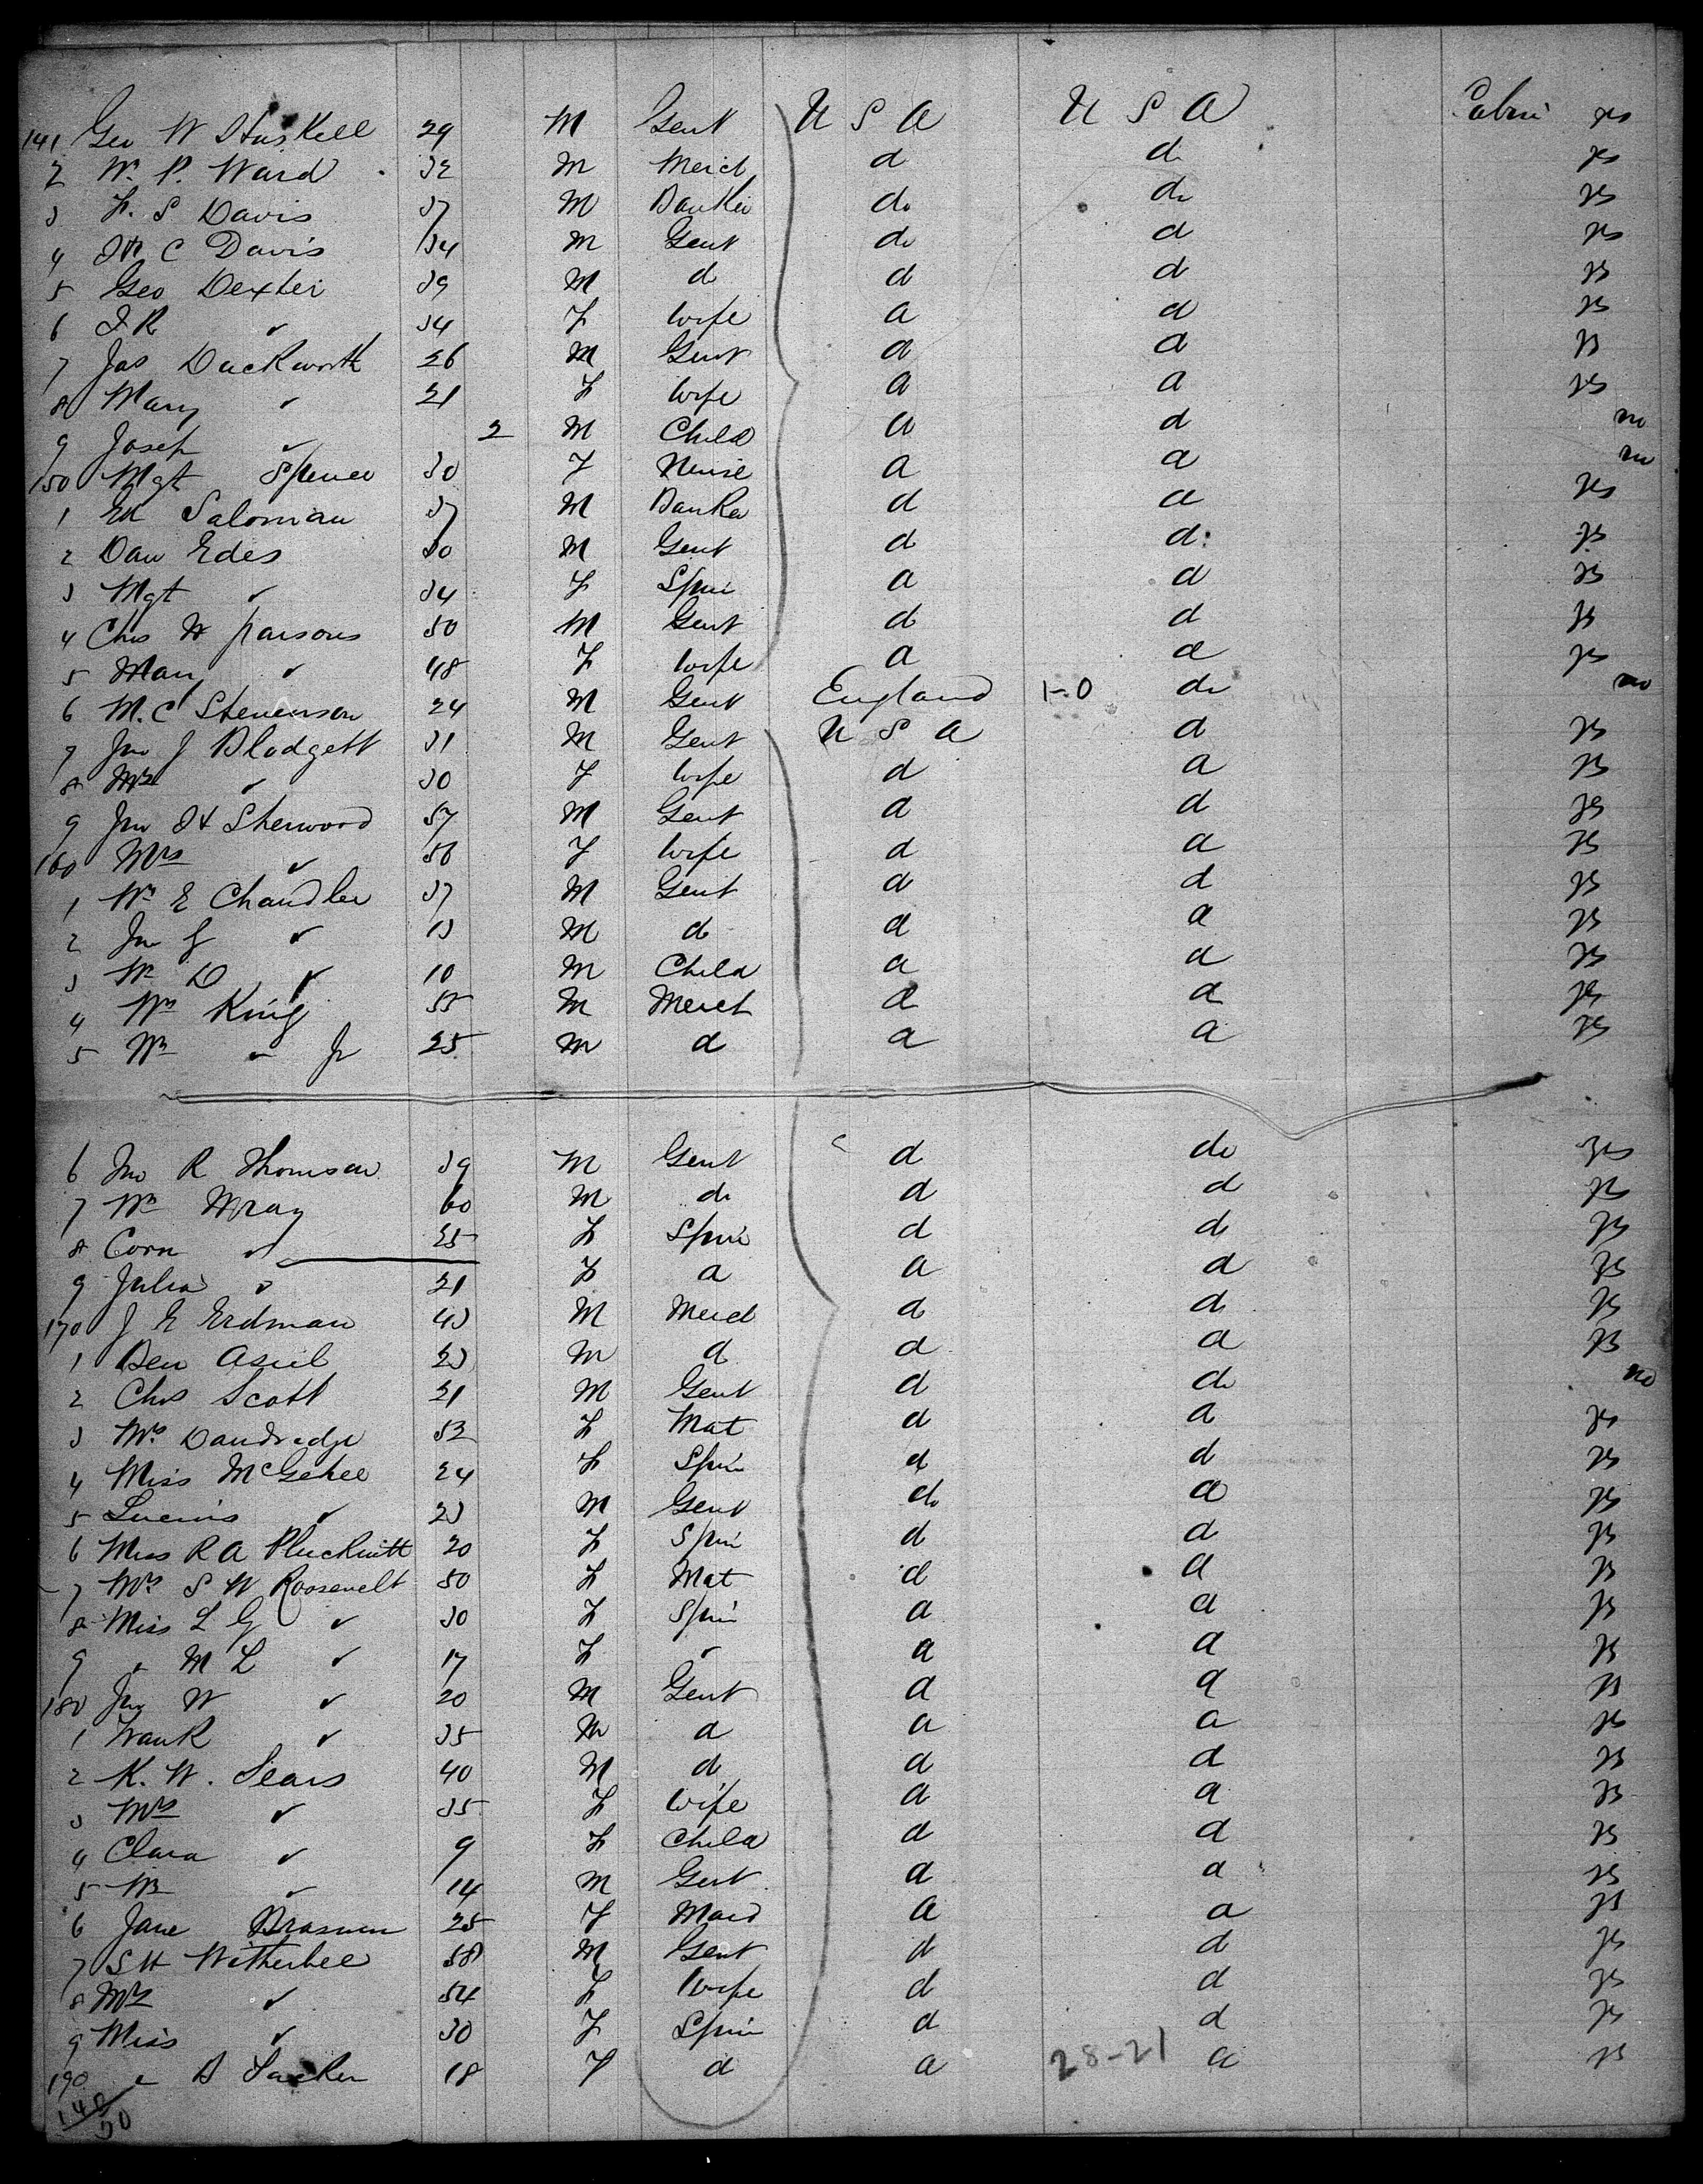 141 Geo W Haskell 29 M Gent U S A U S A Cabin yes
2 Wm P. Ward 32 M Merch d d yes
3 F. S Davis 37 M Banker do do yes
4 C Davis 34 M Gent do d yes
5 Geo Dexter 39 M d d d yes
6 J R " 34 F Wife d d yes
7 Jas Duckworth 26 M Gent d d yes
8 Mary " 21 F Wife d d yes
9 Joseph " 2 M Child d d no
150 Mgt Spence 30 F Nurse d d no
1 Ed Saloman 37 M Banker d d yes
2 Dan Edes 30 M Gent d d yes
3 Mgt " 34 F Spin d d yes
4 Chs H Parsons 50 M Gent d d yes
5 Mary " 48 F Wife d d yes
6 M. C Stevenson 24 M Gent England 1-0 do no
7 Jno J Blodgett 31 M Gent U S A d yes
8 Mrs " 30 F Wife d d yes
9 Jno H Sherwood 57 M Gent d d yes
160 Mrs " 56 F Wife d d yes
1 Wm E Chandler 37 M Gent d d yes
2 Jno J " 13 M d d d yes
3 Wm D " 10 M Child d d yes
4 Wm King 55 M Merch d d yes
5 Wm " Jr 25 M d d d yes
6 Jno R Thomson 39 M Gent d do yes
7 Wm Wray 60 M do d d yes
8 Corn " 25 F Spin d d yes
9 Julia " 21 F d d d yes
170 J E Erdman 43 M Merch d d yes
1 Ben Asiel 23 M d d d yes
2 Chs Scott 21 M Gent d do no
3 Mrs Dandridge 52 F Mat d d yes
4 Miss McGehee 24 F Spin d d yes
5 Lucius " 23 M Gent do d yes
6 Miss R A Pluckwitt 20 F Spin d d yes
7 Mrs S W Roosevelt 50 F Mat d d yes
8 Miss L G " 30 F Spin d d yes
9 " M L " 17 F " d d yes
180 Jno W " 20 M Gent d d yes
1 Frank " 35 M d d d yes
2 K. W. Sears 40 M d d d yes
3 Mrs " 35 F Wife d d yes
4 Clara " 9 F Child d d yes
5 Wm " 14 M Gent d d yes
6 Jane 25 F Maid d d yes
7 S H Witherbee 58 M Gent d d yes
8 Mrs " 54 F Wife d d yes
9 Miss " 30 F Spin d d yes
190 " 18 F d d 28-21 d yes
140
50